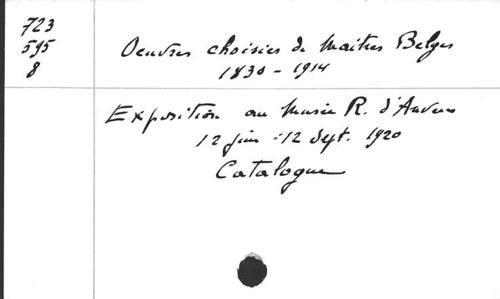 723
595
8
Oeuvres choisies de Maîtres Belges
1830 - 1914
Exposition au Musée R. d'Anvers
12 juin - 12 Sept. 1920
Catalogue